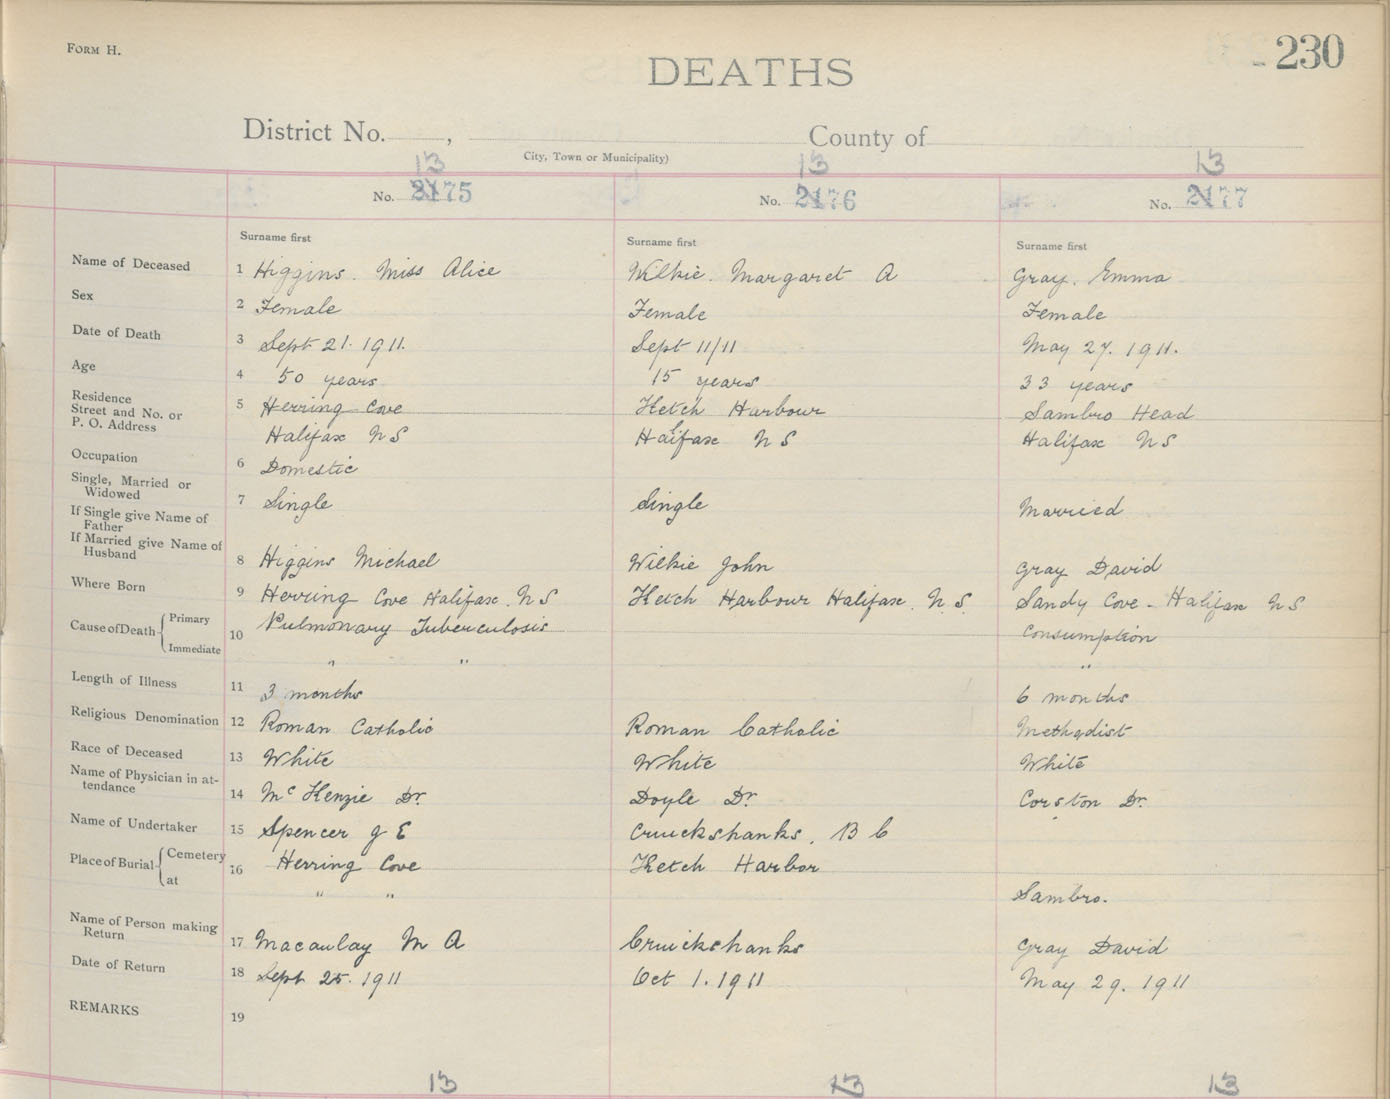 FORM H.
230
DEATHS
District No. , County of
City, Town or Municipality)
13 13 13
No. 2175 No. 2176 No. 2177
Surname first Surname first Surname first
Name of Deceased 1 Higgins. Miss Alice Wilkie. Margaret A Gray. Emma
Sex 2 Female Female Female
Date of Death 3 Sept 21. 1911. Sept 11/11 May 27. 1911.
Age 4 50 years 15 years 33 years
Residence
Street and No. or
P. O. Address
5 Herring Cove Ketch Harbour Sambro Head
Halifax NS Halifax NS Halifax NS
Occupation 6 Domestic
Single, Married or
Widowed
7 Single Single Married
If Single give Name of
Father
If Married give Name of
Husband
8 Higgins Michael Wilkie John Gray David
Where Born 9 Herring Cove Halifax. NS Ketch Harbour Halifax. N.S. Sandy Cove - Halifax NS
Cause of Death Primary 10 Pulmonary Tuberculosis Consumption
Immediate " " "
Length of Illness 11 3 months 6 months
Religious Denomination 12 Roman Catholic Roman Catholic Methodist
Race of Deceased 13 White White White
Name of Physician in at-
tendance
14 McKenzie Dr. Doyle Dr Corston Dr.
Name of Undertaker 15 Spencer J E Cruickshanks. B C
Place of Burial Cemetery 16 Herring Cove Ketch Harbor
at " " Sambro.
Name of Person making
Return
17 Macaulay M A Cruickshanks Gray David
Date of Return 18 Sept 25. 1911 Oct 1. 1911 May 29. 1911
REMARKS 19
13 13 13